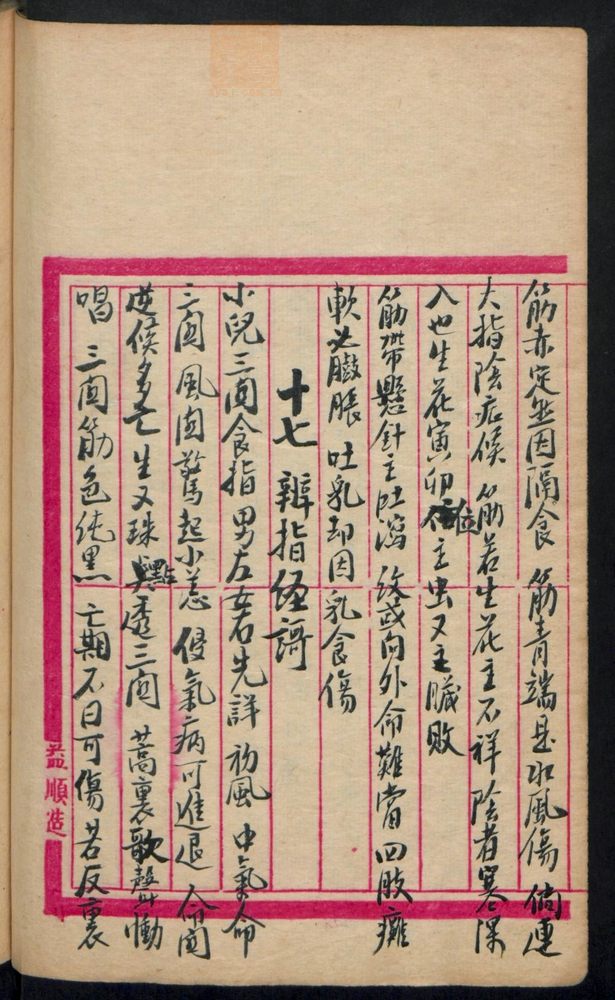 筋赤定然因隔食 筋青端是水風傷 倘連
大指陰症候 筋若生花主不祥 陰者寒深
入也生花寅卯位主虫又主臟敗
筋帶懸針主吐瀉 紋或向外命難當 四肢癱
軟必臌脹 吐乳却因乳食傷
十七 辯指徑訶
小兒三関食指 男左女右先詳 初風 中氣命
三関 風関驚起小恙 侵氣病可進退 命関
危候多亡 生又珠 點透三関 蒿裏歌聲慟
唱 三関筋色純黒 亡期不日可傷 若反裏
益順造